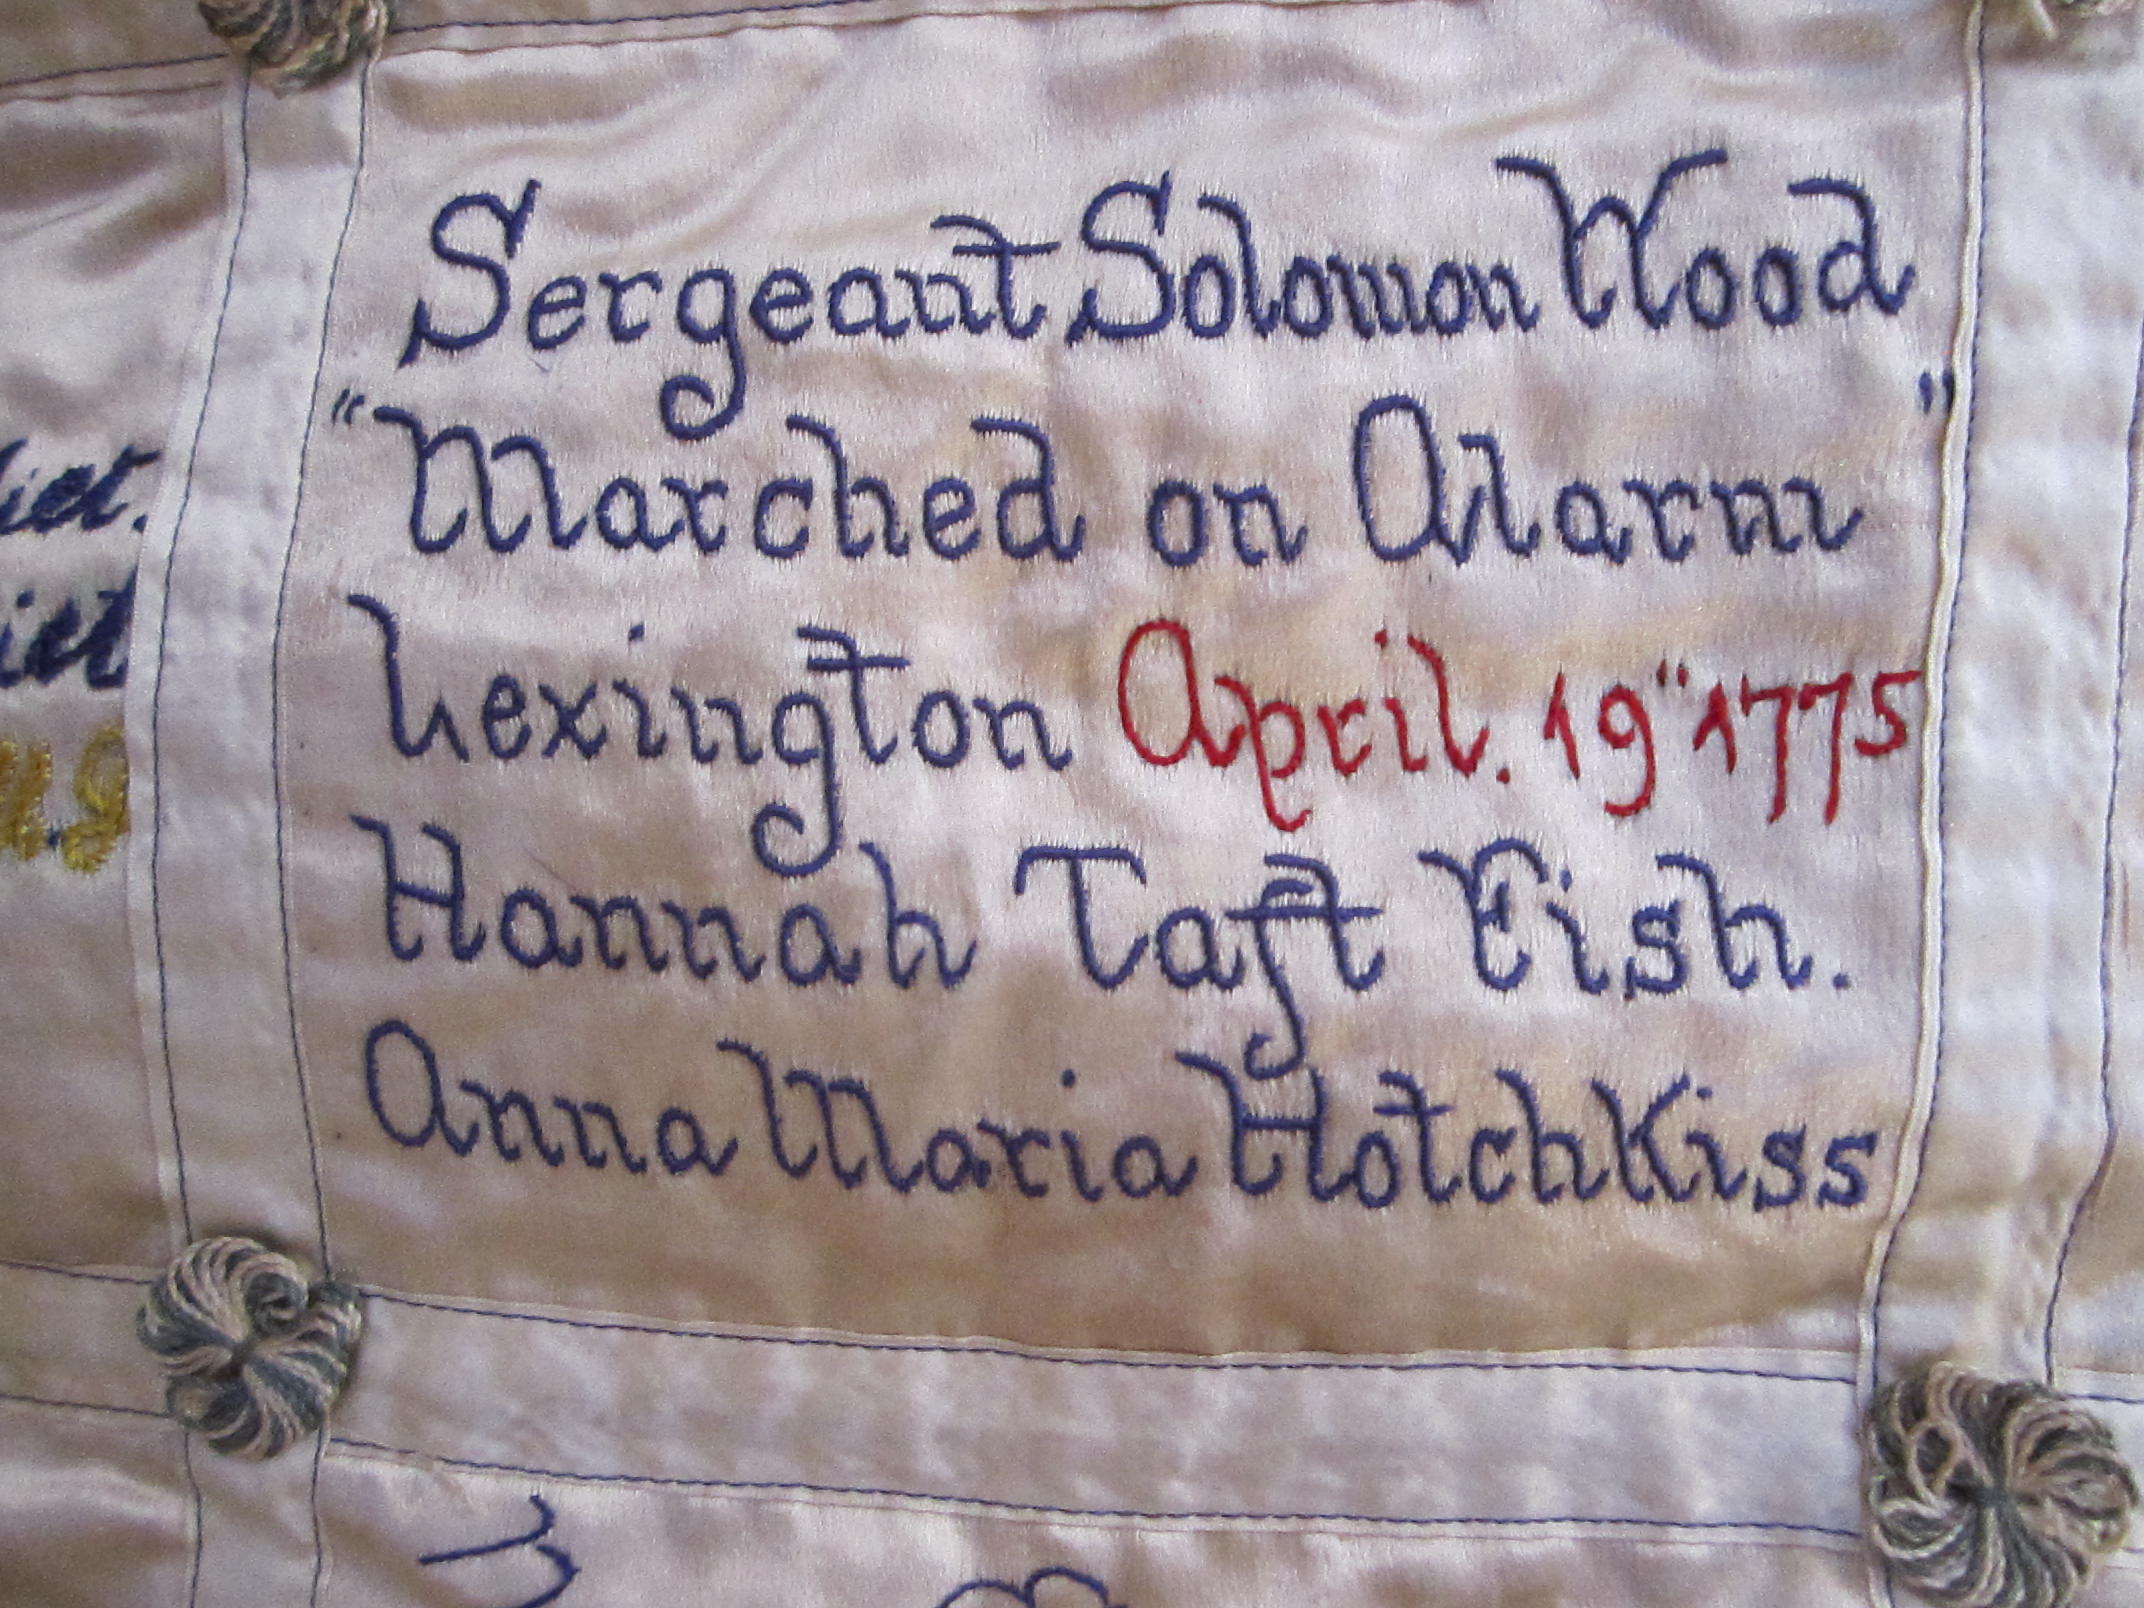 Sergeant Solomon Wood
"Marched on Alarm"
Lexington April. 19" 1775
Hannah Taft Fish.
Anna Maria HotchKiss